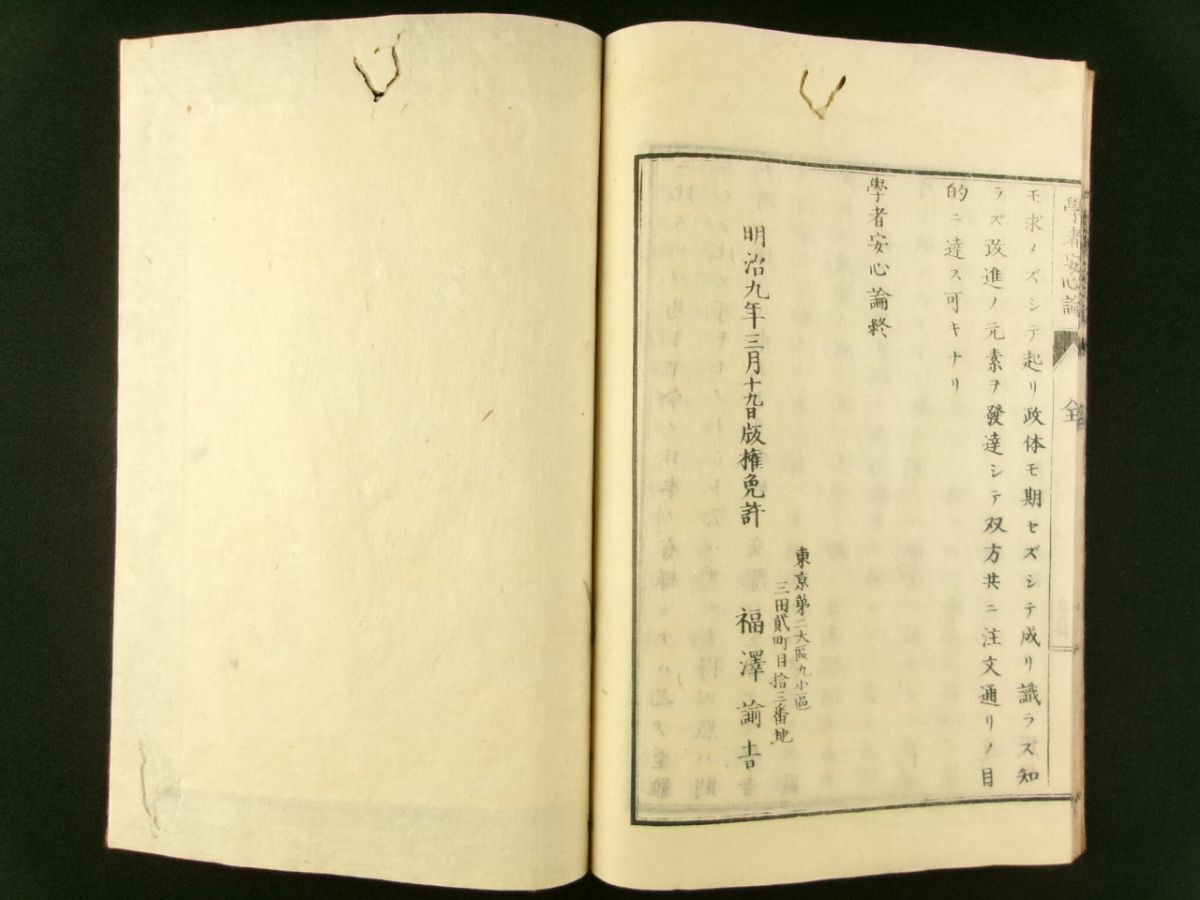 學者安心論
全
モ求メズシテ起リ政体モ期セズシテ成リ識ラズ知
ラズ改進ノ元素ヲ發達シテ双方共ニ注文通リノ目
的ニ達ス可キナリ
學者安心論終
東京第二大區九小區
三田貳町目拾三番地
明治九年三月十九日版権免許 福澤諭吉